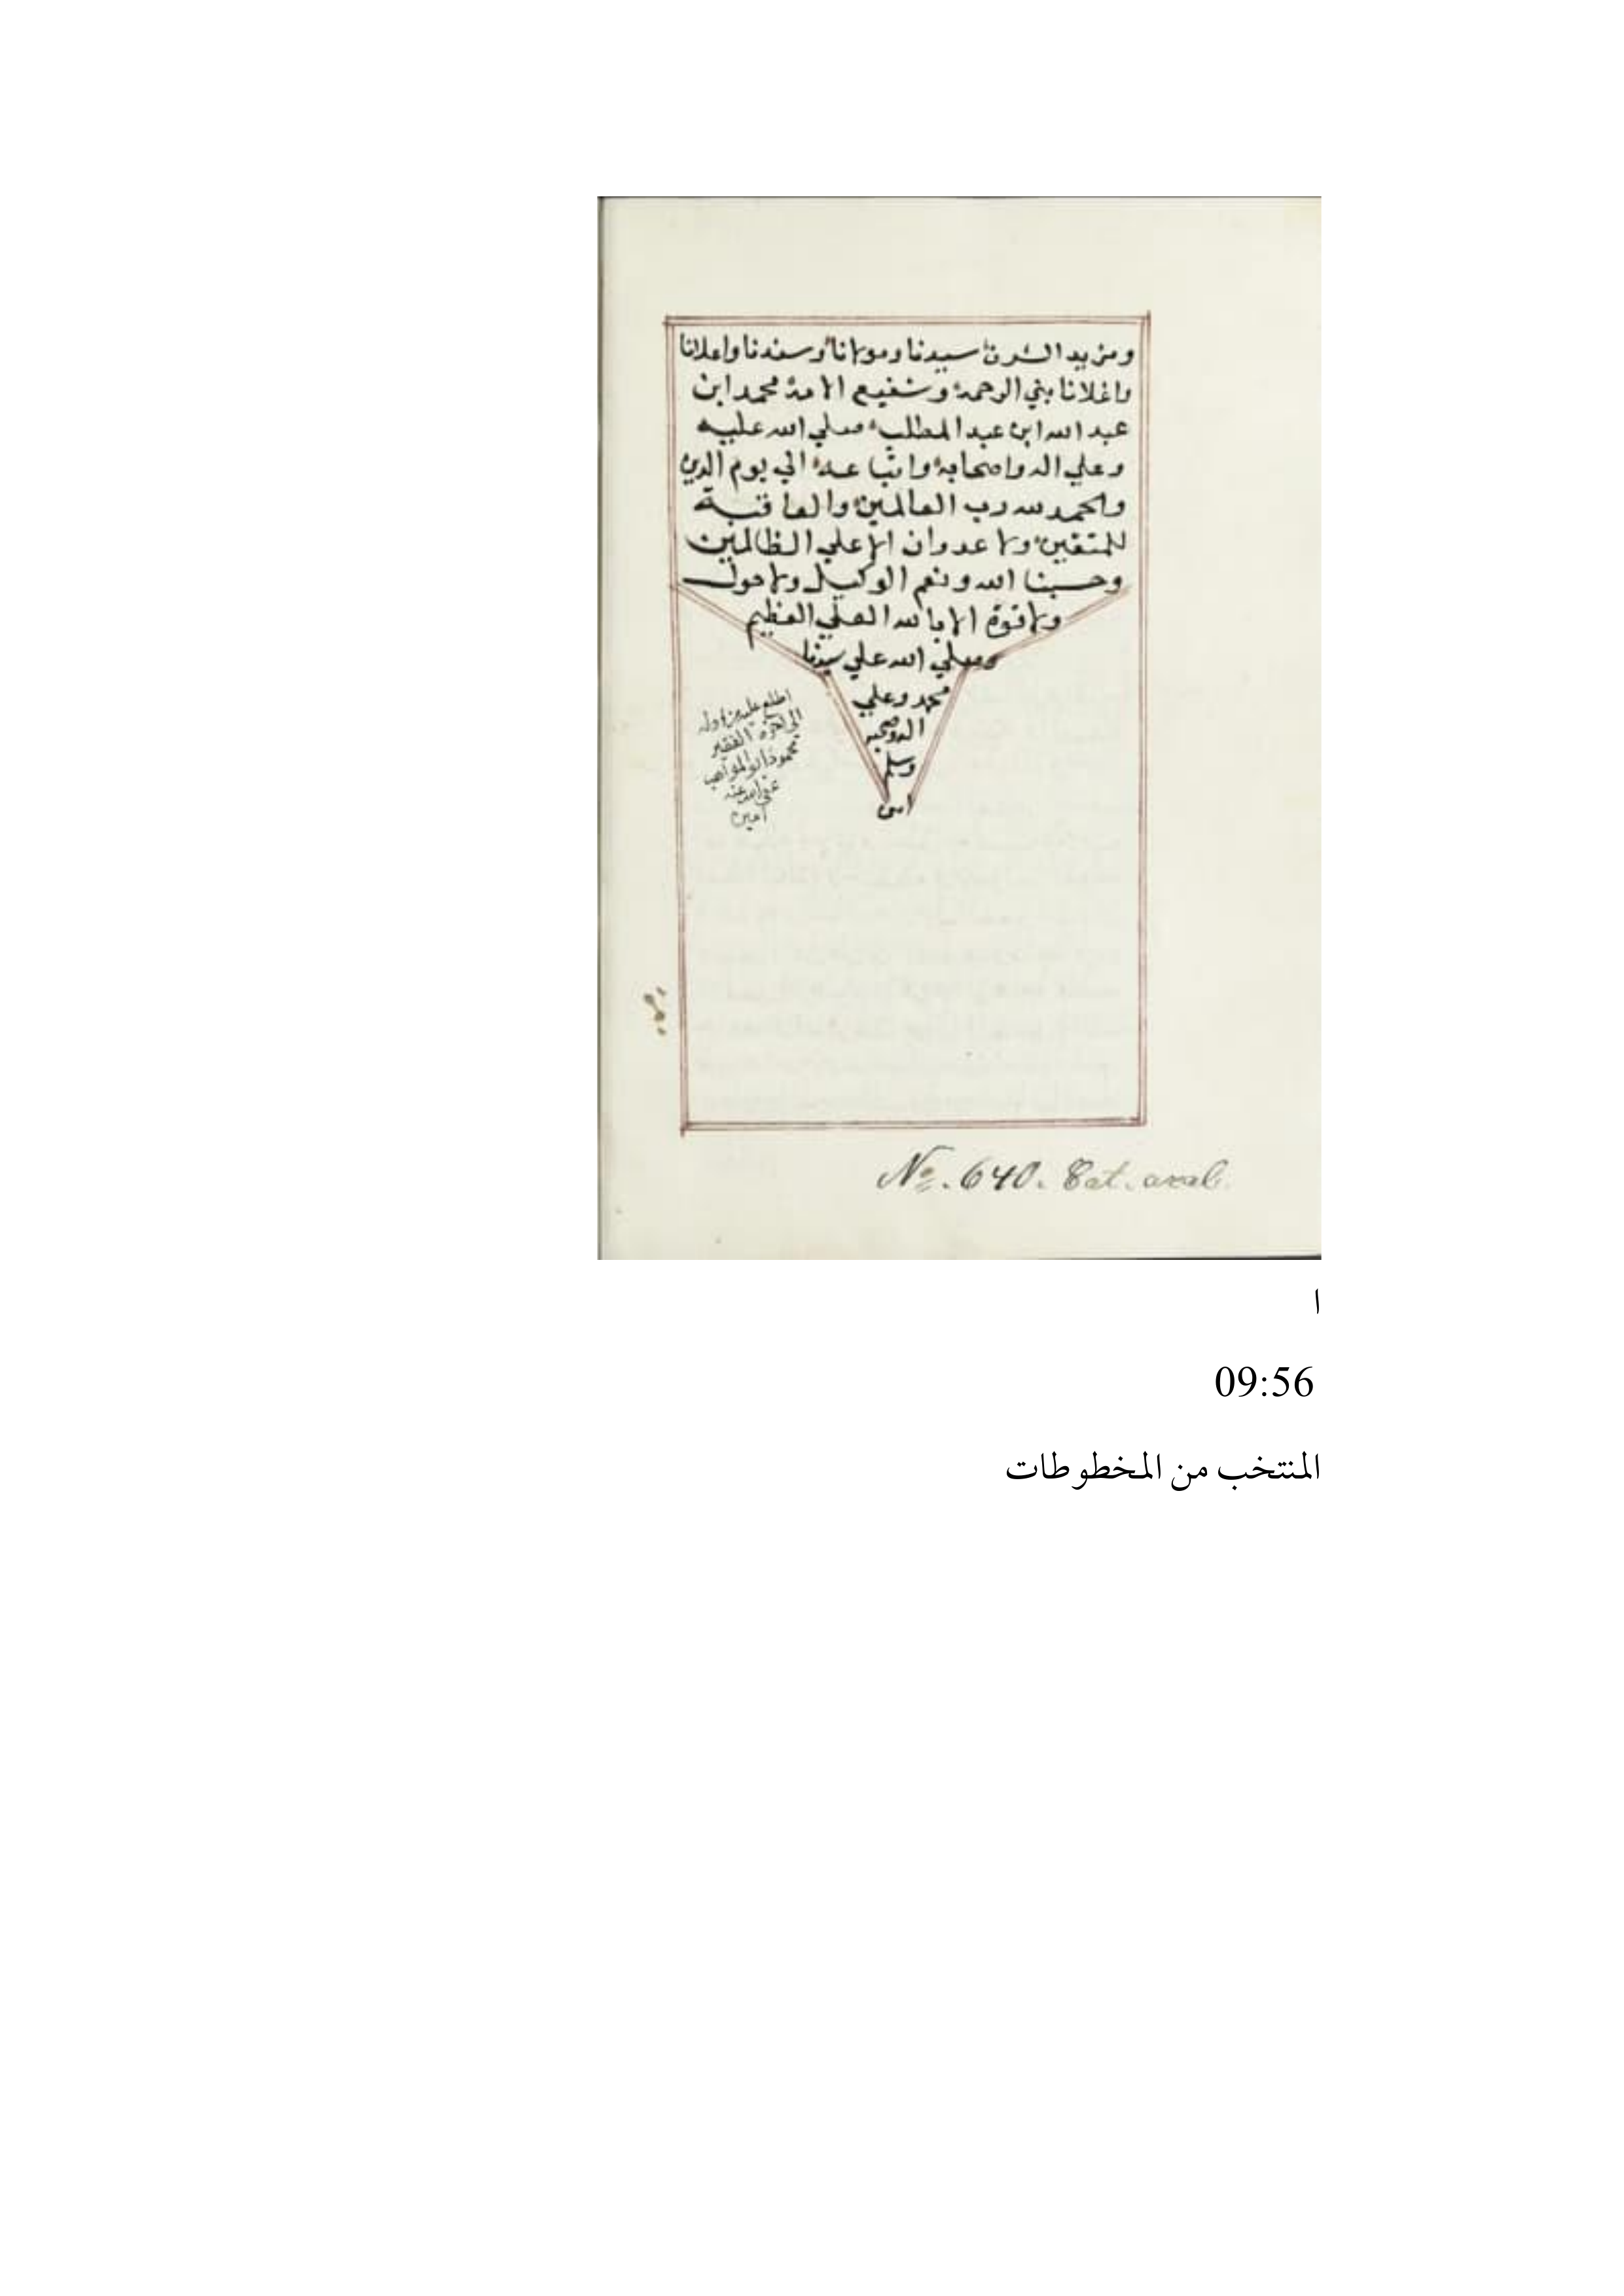 ومزيد الشرف سيدنا ومولانا وسندنا واعلانا
واغلانا بني الرحمة وشفيع الامة محمد ابن
عبد الله ابن عبد المطلب صلي الله عليه
وعلي اله واصحابه واتباعه الي يوم الدين
والحمد لله رب العالمين والعاقبة
للمتقين ولا عدوان الا علي الظالمين
وحسبنا الله ونعم الوكيل ولا حول
ولا قوة الا بالله العلي العظيم
وصلي الله علي سيدنا
محمد وعلي
اله وصحبه
وسلم
امين
اطلع عليه من اوله
الي اخره الفقير
محمود ابو المواهب
عفي الله عنه
امين
No. 640. Cat. arab.
ا
09:56
المنتخب من المخطوطات